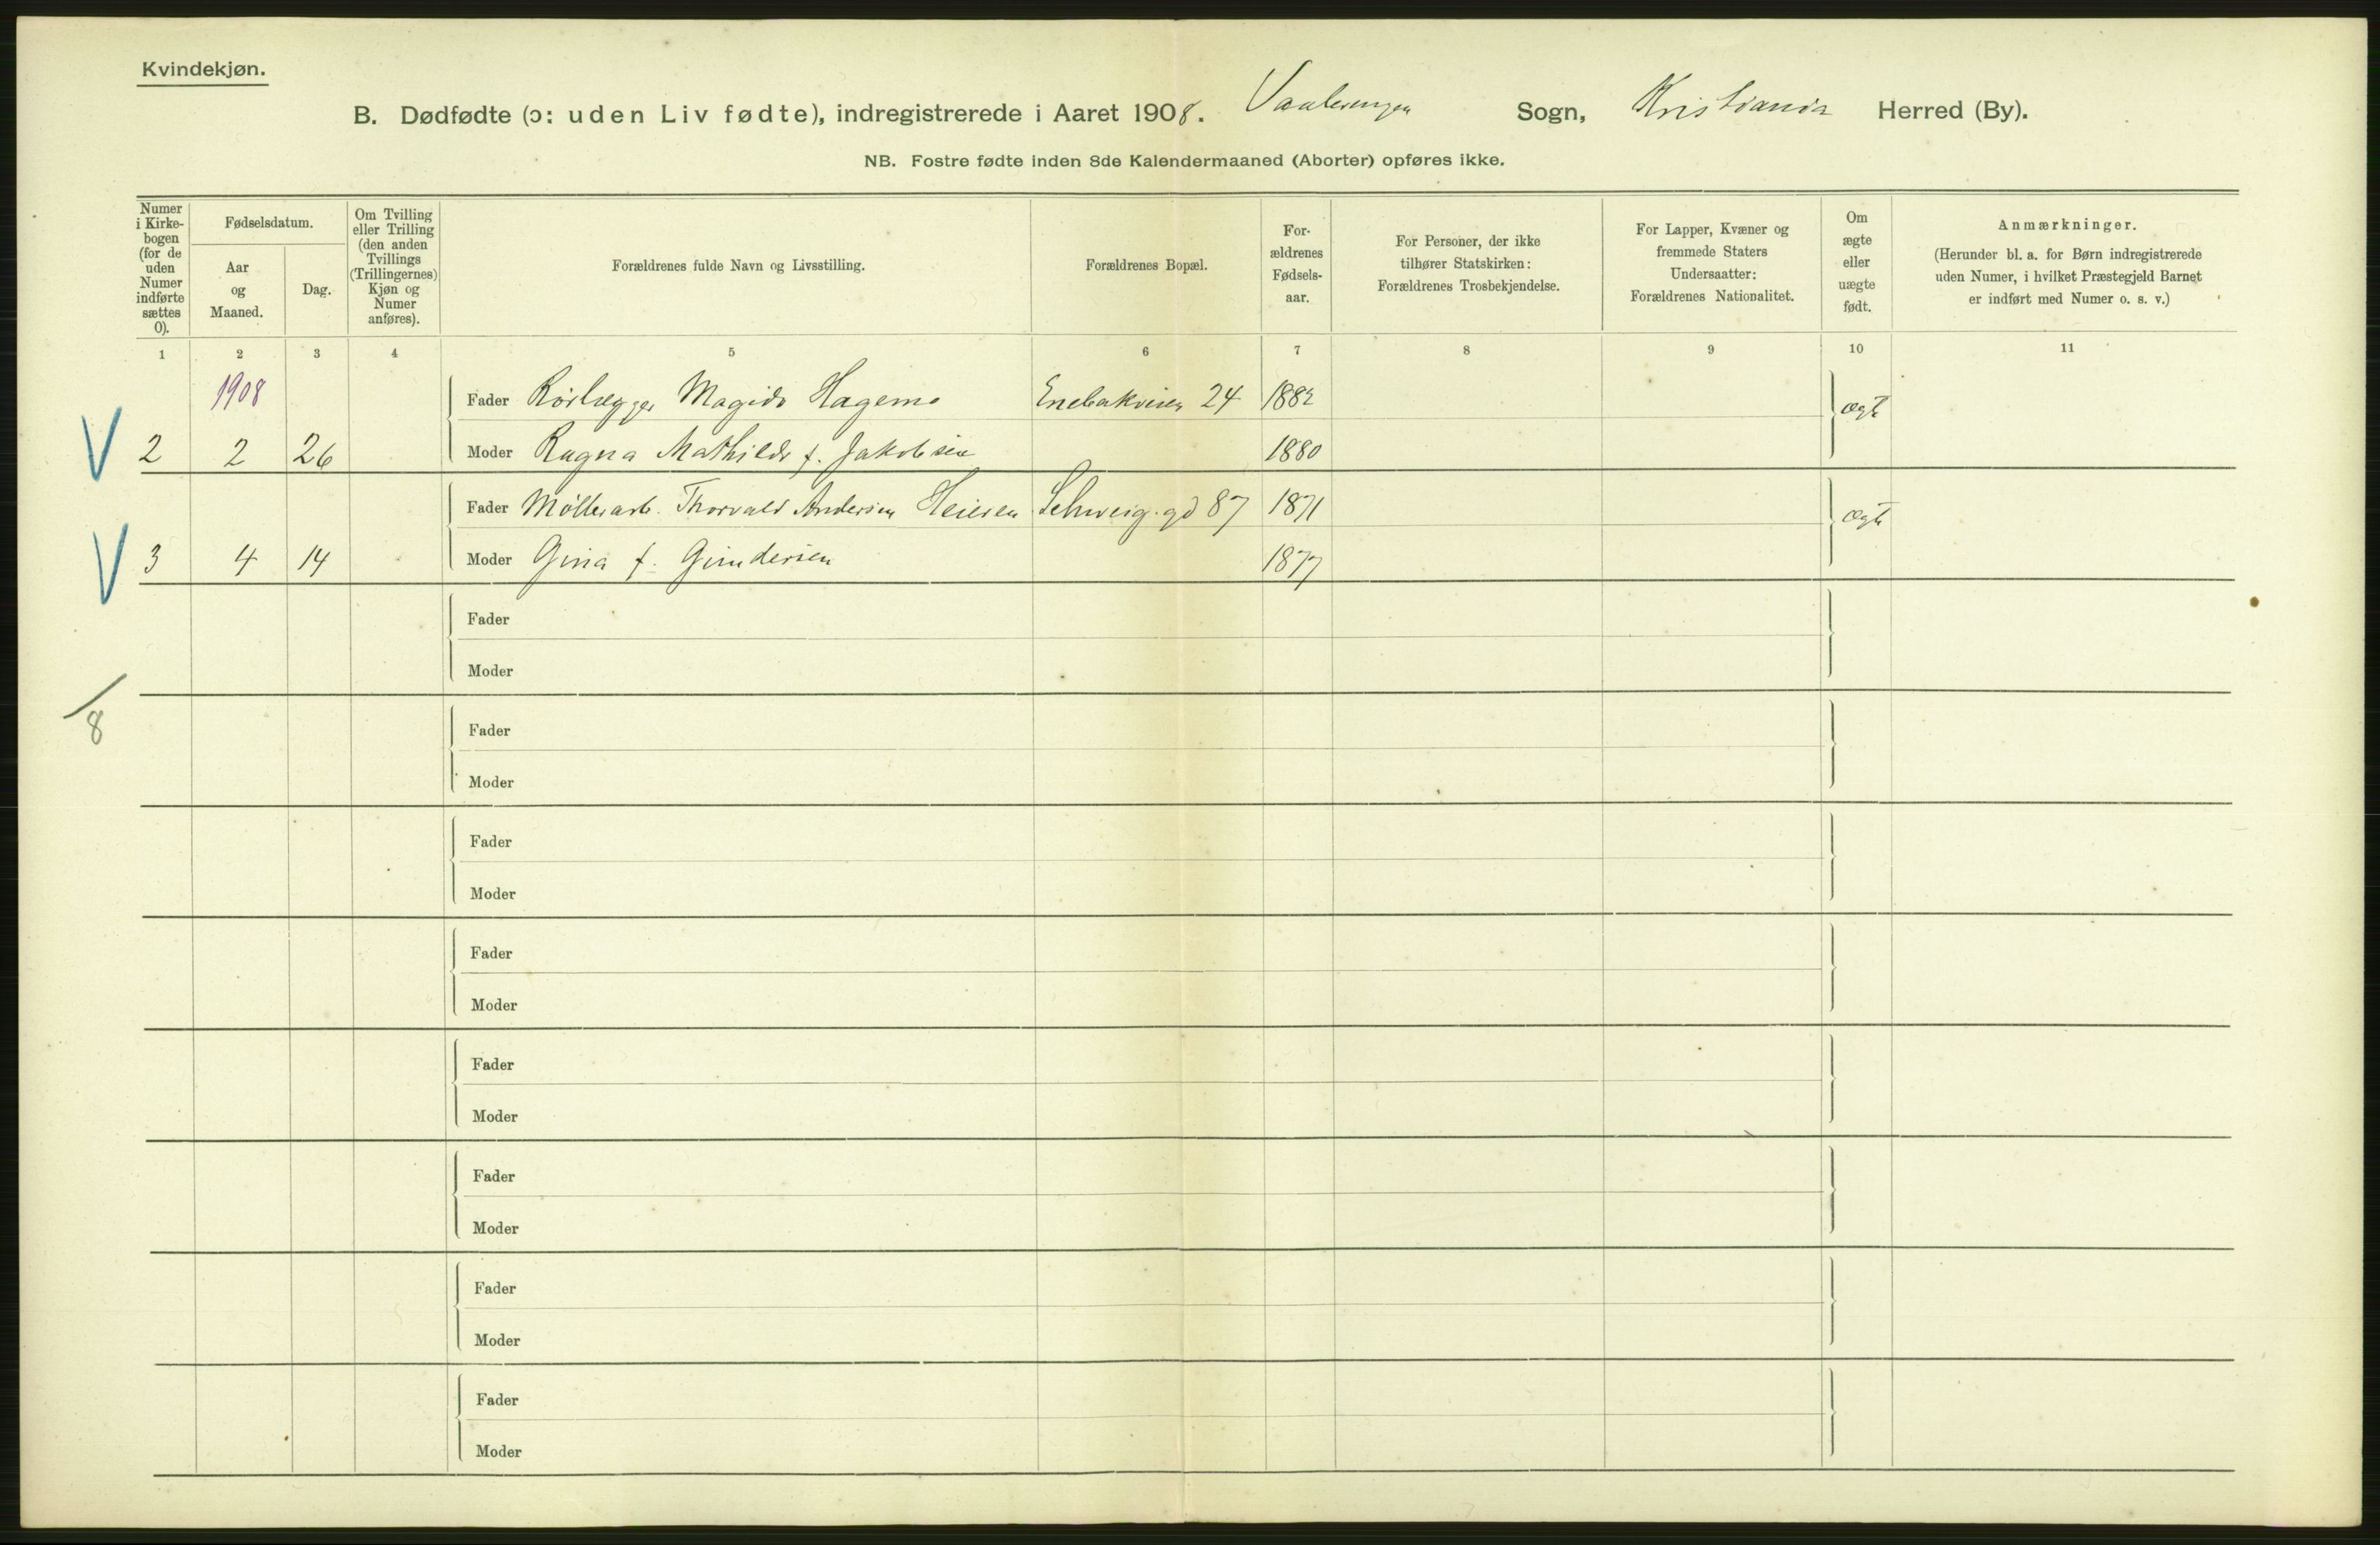 Kvindekjøn.
B. Dødfødte (ɔ: uden Liv fødte), indregistrerede i Aaret 1908. Vaalerengen Sogn, Kristiania Herred (By).
NB. Fostre fødte inden 8de Kalendermaaned (Aborter) opføres ikke.
Numer i Kirkebogen (for de uden Numer indførte sættes 0).
Fødselsdatum.
Aar og Maaned.
Dag.
Om Tvilling eller Trilling (den anden Tvillings (Trillingernes) Kjøn og Numer anføres).
Forældrenes fulde Navn og Livsstilling.
Forældrenes Bopæl.
Forældrenes Fødselsaar.
For Personer, der ikke tilhører Statskirken: Forældrenes Trosbekjendelse.
For Lapper, Kvæner og fremmede Staters Undersaatter: Forældrenes Nationalitet.
Om ægte eller uægte født.
Anmærkninger.
(Herunder bl. a. for Børn indregistrerede uden Numer, i hvilket Præstegjeld Barnet er indført med Numer o. s. v.)
1 2 3 4 5 6 7 8 9 10 11
1908
Fader Rørlægger Hagemo Enebakveien 24 1882 ægte
V 2 2 26 Moder Ragna Mathilde f. Jakobsen 1880
Fader Møllerarb. Thorvald Andersen Schweig.gd 87 1871 ægte
V 3 4 14 Moder Gina f. Gundersen 1877
Fader
Moder
8
Fader
Moder
Fader
Moder
Fader
Moder
Fader
Moder
Fader
Moder
Fader
Moder
Fader
Moder